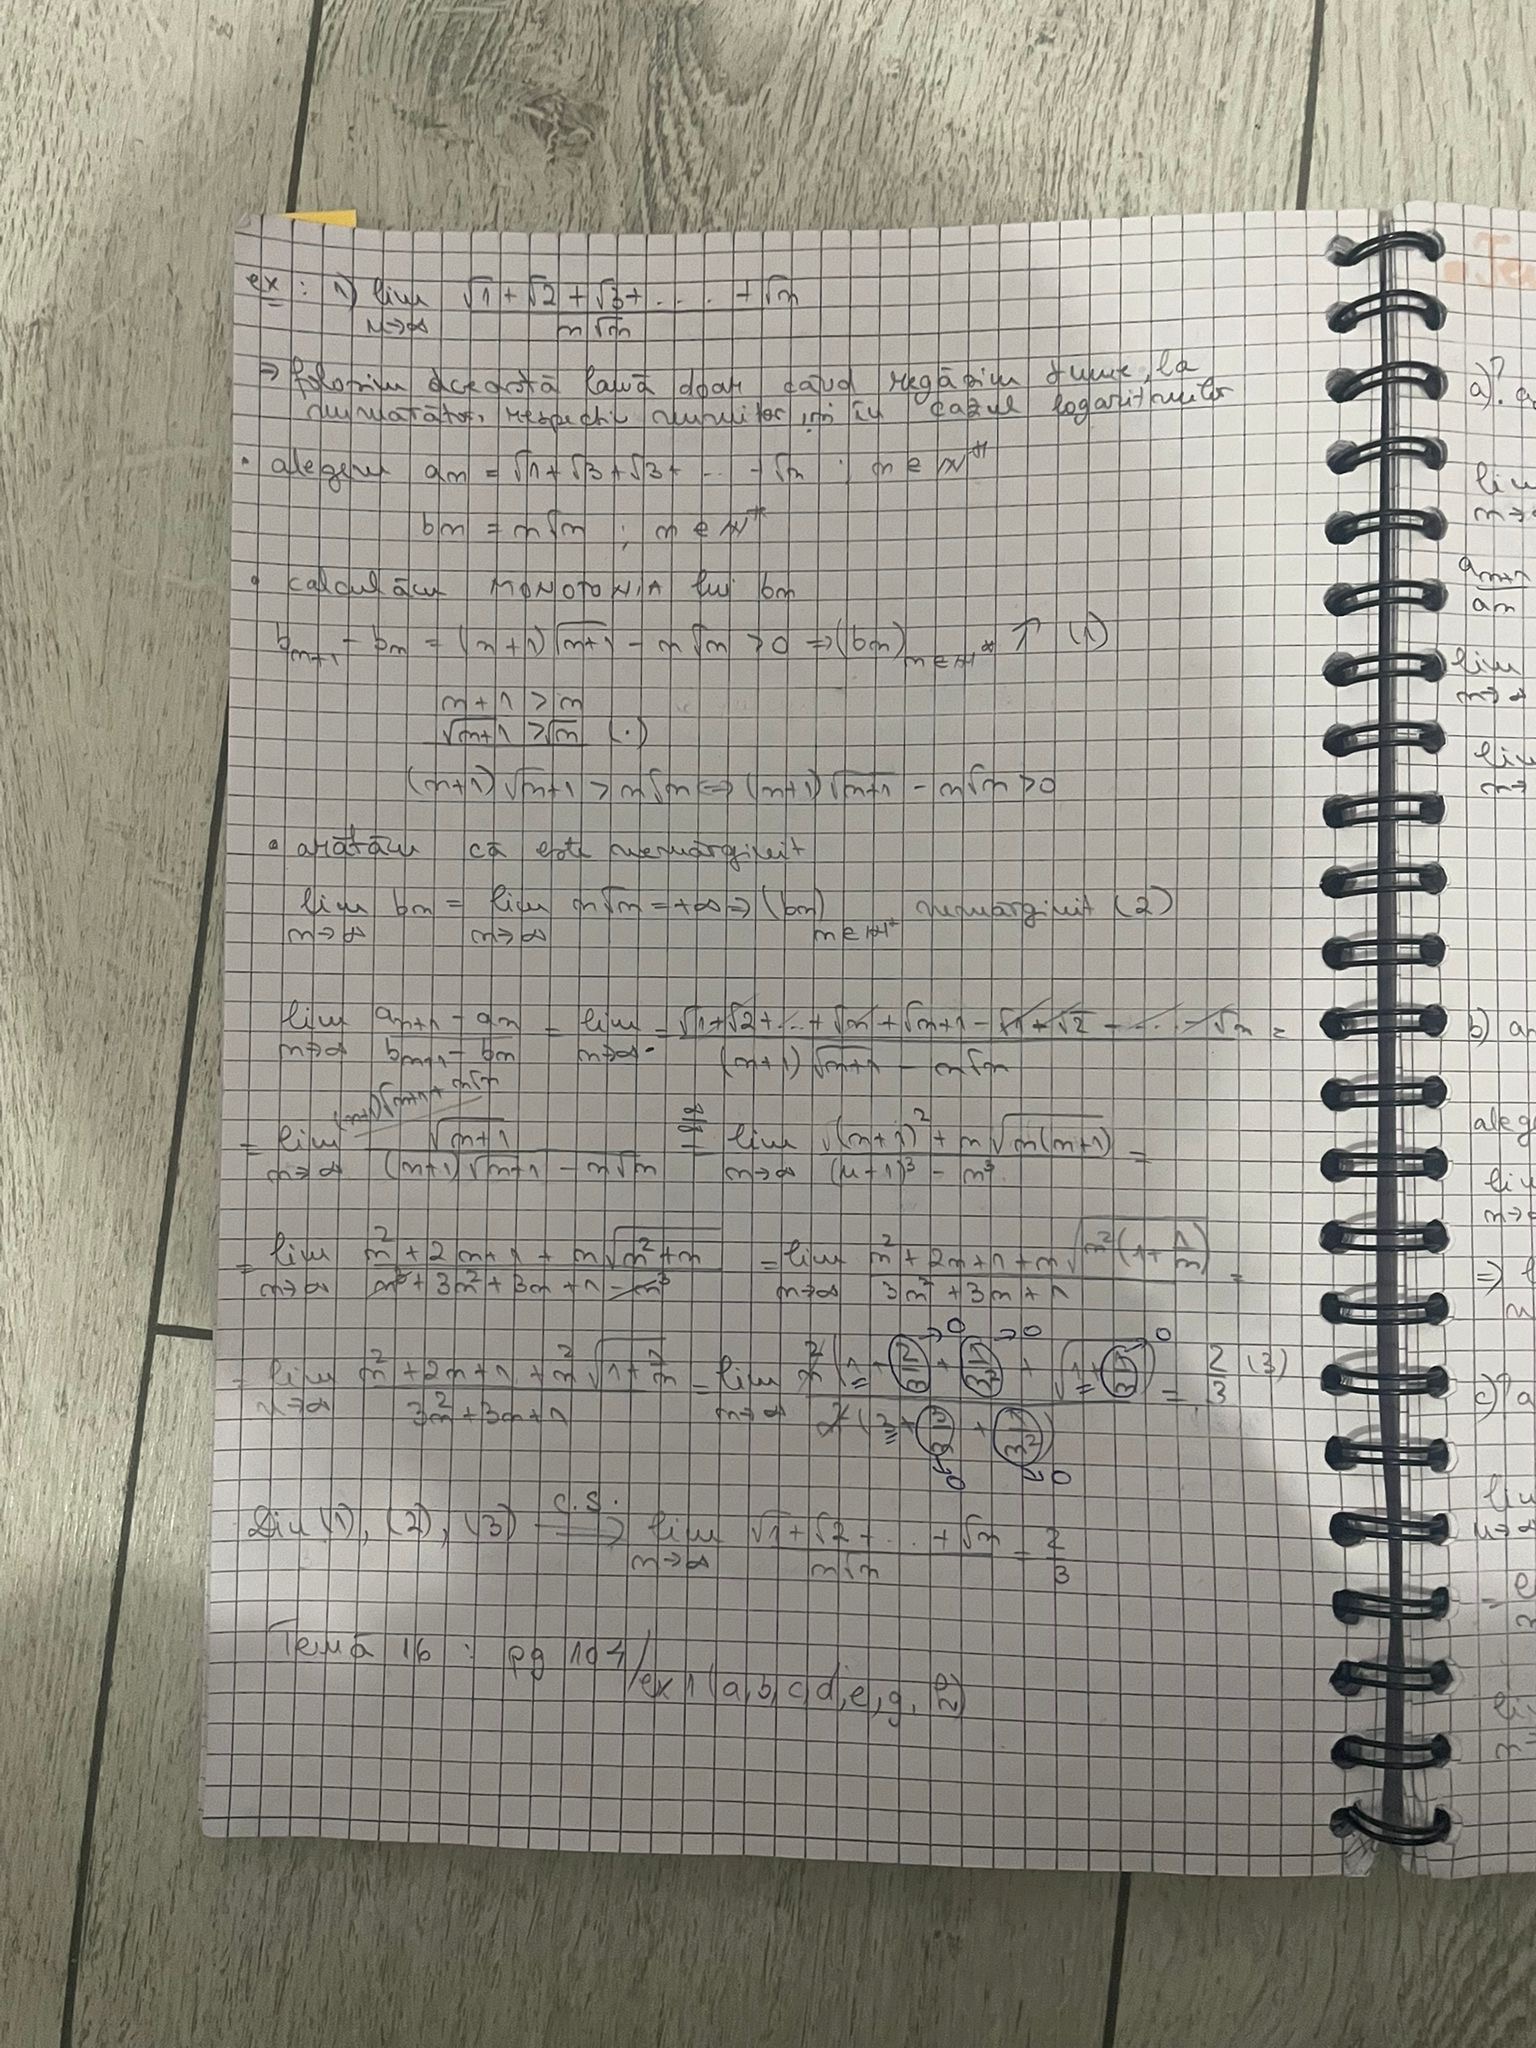 ex: 1) lim n→∞ (√1 + √2 + √3 + .... + √n) / (n√n)
⇒ folosim această lemă doar când regăsim sume, la
numărător, respectiv numitor, și în cazul logaritmilor
• alegem an = √1 + √3 + √3 + ... + √n ; n ∈ N*
bn = n√n ; n ∈ N*
• calculăm MONOTONIA lui bn
bn+1 - bn = (n+1)√(n+1) - n√n > 0 ⇒ (bn) n∈N* ↑ (1)
n + 1 > n
√(n+1) > √n (·)
(n+1)√(n+1) > n√n ⇔ (n+1)√(n+1) - n√n > 0
• arătăm că este nemărginit
lim n→∞ bn = lim n→∞ n√n = +∞ ⇒ (bn) n∈N* nemărginit (2)
lim n→∞ (an+1 - an) / (bn+1 - bn) = lim n→∞ = (√1 + √2 + ... + √n + √(n+1) - √1 + √2 - ... - √n) / ((n+1)√(n+1) - n√n) =
(n+1)√(n+1) + n√n
= lim n→∞ √(n+1) / ((n+1)√(n+1) - n√n) =^(∞/∞) lim n→∞ (√(n+1)² + n√(n(n+1))) / ((n+1)³ - n³) =
= lim n→∞ (n² + 2n + 1 + n√(n² + n)) / (n³ + 3n² + 3n + 1 - n³) = lim n→∞ (n² + 2n + 1 + n√(n²(1 + 1/n))) / (3n² + 3n + 1) =
= lim n→∞ (n² + 2n + 1 + n²√(1 + 1/n)) / (3n² + 3n + 1) = lim n→∞ n²(1 + 2/n →0 + 1/n² →0 + √(1 + 1/n →0)) / n²(3 + 3/n →0 + 1/n² →0) = 2/3 (3)
Din (1), (2), (3) ⇒^(C.S.) lim n→∞ (√1 + √2 + ... + √n) / (n√n) = 2/3
Temă 16 : pg 104/
ex 1 (a, b, c, d, e, g,
a)
lim
n→∞
an+1
an
lim
n→∞
lim
n→
b) an
aleg
lim
n→∞
⇒ l
c) a
lim
n→∞